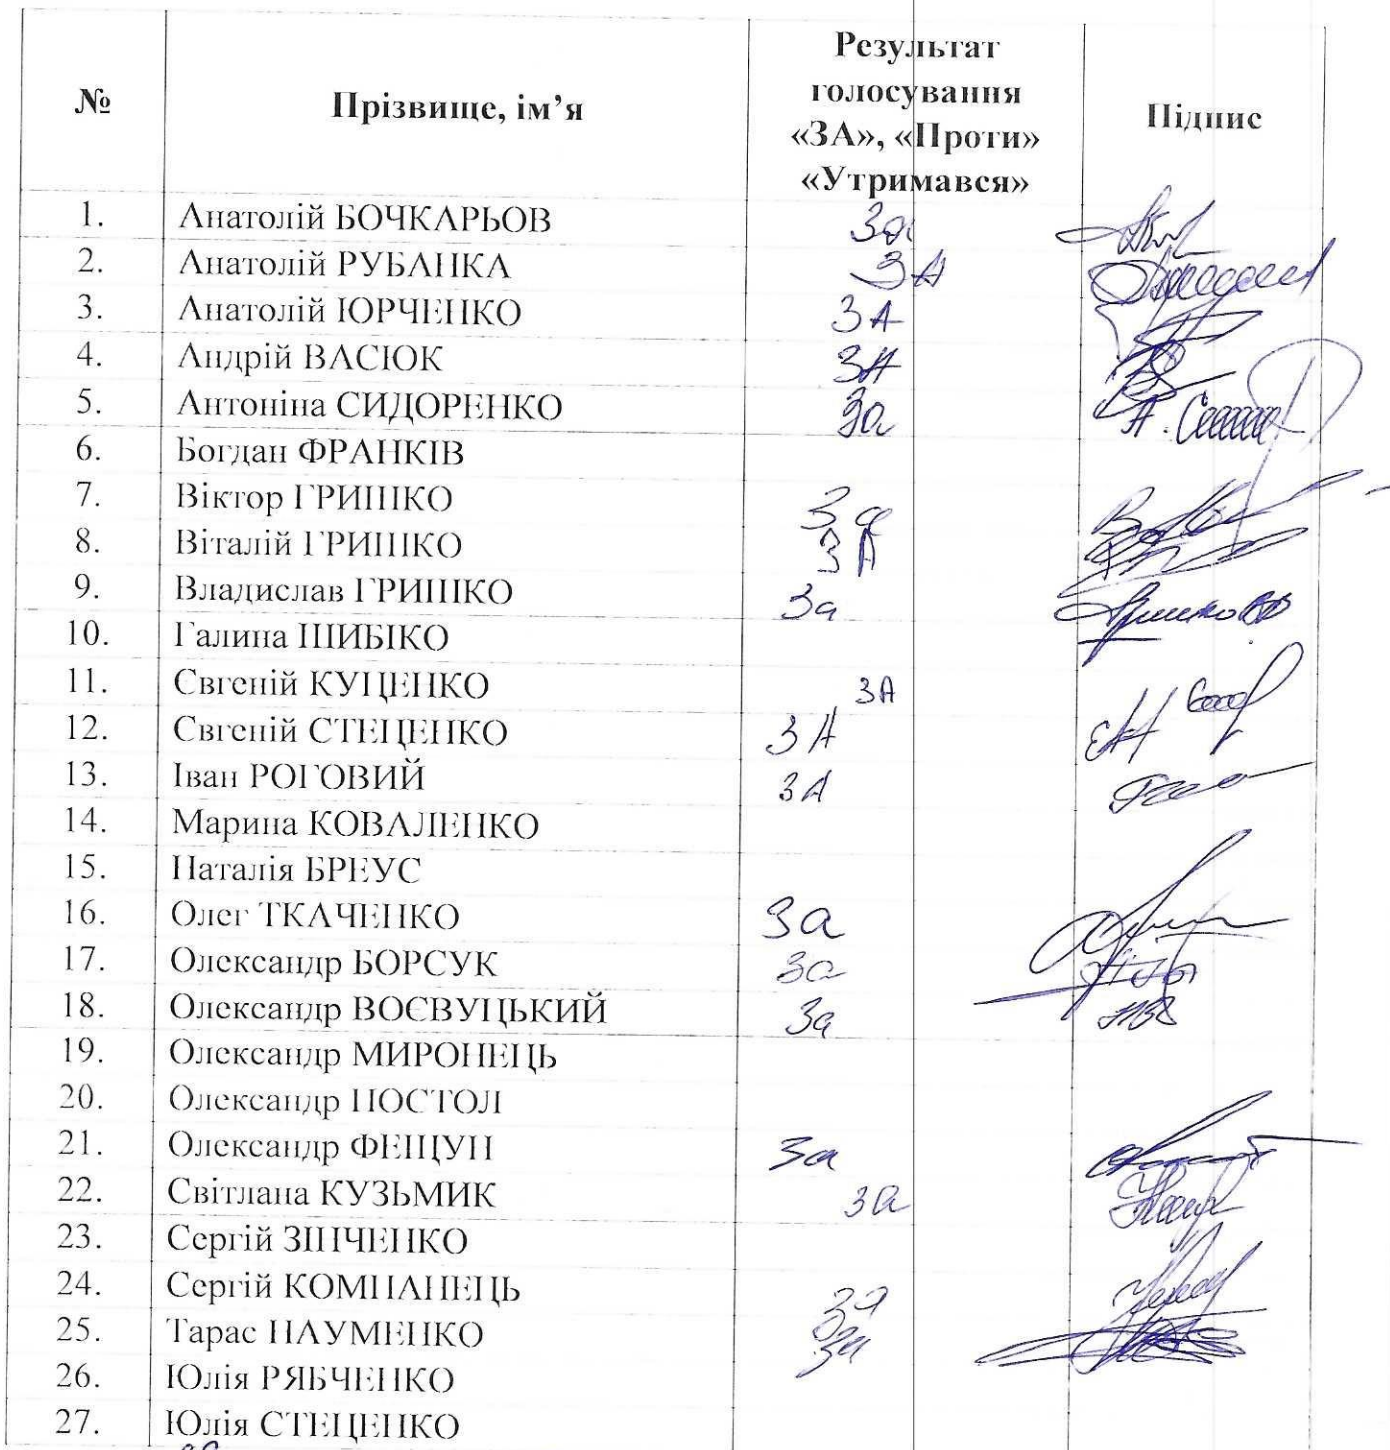 № Прізвище, ім’я Результат голосування «ЗА», «Проти» «Утримався» Підпис
1. Анатолій БОЧКАРЬОВ За
2. Анатолій РУБАНКА ЗА
3. Анатолій ЮРЧЕНКО ЗА
4. Андрій ВАСЮК ЗА
5. Антоніна СИДОРЕНКО За
6. Богдан ФРАНКІВ
7. Віктор ГРИШКО За
8. Віталій ГРИШКО ЗА
9. Владислав ГРИШКО За
10. Галина ШИБІКО
11. Євгеній КУЦЕНКО ЗА
12. Євгеній СТЕЦЕНКО ЗА
13. Іван РОГОВИЙ ЗА
14. Марина КОВАЛЕНКО
15. Наталія БРЕУС
16. Олег ТКАЧЕНКО За
17. Олександр БОРСУК За
18. Олександр ВОЄВУЦЬКИЙ За
19. Олександр МИРОНЕЦЬ
20. Олександр ПОСТОЛ
21. Олександр ФЕЩУН За
22. Світлана КУЗЬМИК За
23. Сергій ЗІНЧЕНКО
24. Сергій КОМПАНЕЦЬ За
25. Тарас НАУМЕНКО За
26. Юлія РЯБЧЕНКО
27. Юлія СТЕЦЕНКО